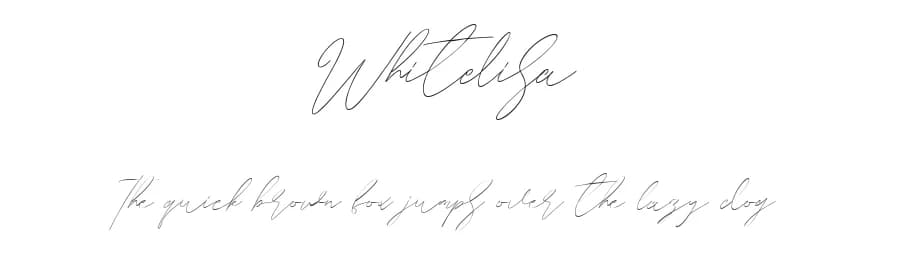 Whitelisa
The quick brown fox jumps over the lazy dog